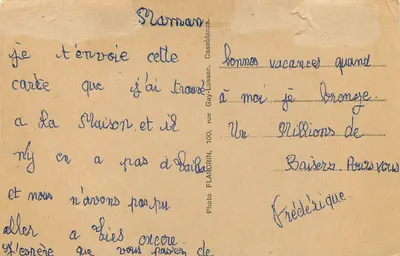 Maman
je t'envoie cette
carte que j'ai trouve
a la Maison. et il
n'y en a pas d'
et nous n'avons pas pu
aller a encore
J'espère que vous passer de
bonnes vacances quand
à moi je bronze.
Un Millions de
Baisers. Pour vous
Frédérique.
Photo FLANDRIN, 100, rue Gay-Lussac, Casablanca.